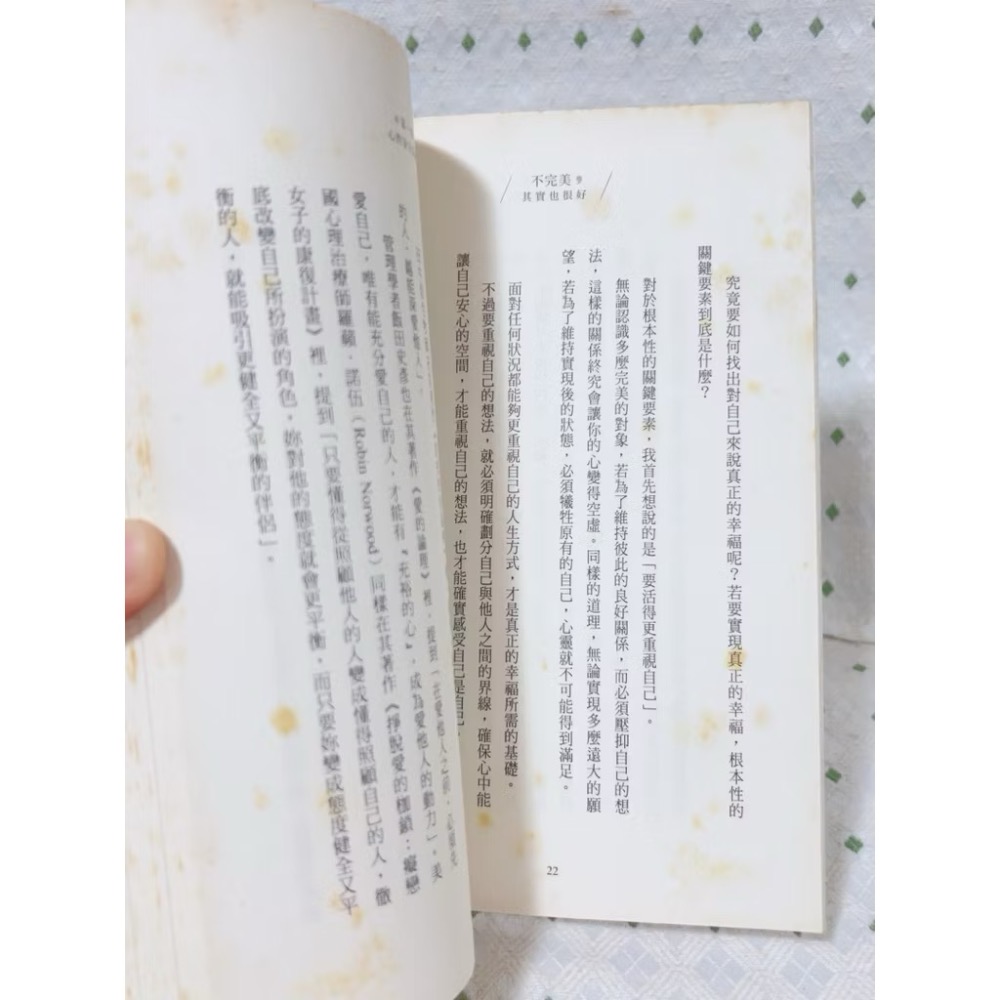 不完美
其實也很好
究竟要如何找出對自己來說真正的幸福呢？若要實現真正的幸福，根本性的
關鍵要素到底是什麼？
對於根本性的關鍵要素，我首先想說的是「要活得更重視自己」。
無論認識多麼完美的對象，若為了維持彼此的良好關係，而必須壓抑自己的想
法，這樣的關係終究會讓你的心變得空虛。同樣的道理，無論實現多麼遠大的願
望，若為了維持實現後的狀態，必須犧牲原有的自己，心靈就不可能得到滿足。
面對任何狀況都能夠更重視自己的人生方式，才是真正的幸福所需的基礎。
不過要重視自己的想法，就必須明確劃分自己與他人之間的界線，確保心中能
讓自己安心的空間，才能重視自己的想法，也才能確實感受自己是自己。
22
的人，
管理學者飯田史彥也在其著作《愛的論理》裡，提到「在愛他人之前，必須先
愛自己，唯有能充分愛自己的人，才能有『充裕的心』，成為愛他人的動力」。美
國心理治療師羅蘋．諾伍（Robin Norwood）同樣在其著作《掙脫愛的枷鎖：癡戀
女子的康復計畫》裡，提到「只要懂得從照顧他人的人變成懂得照顧自己的人，徹
底改變自己所扮演的角色，妳對他的態度就會更平衡，而只要妳變成態度健全又平
衡的人，就能吸引更健全又平衡的伴侶」。